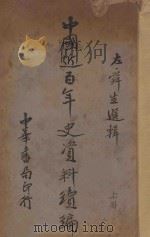 左舜生選輯
上冊
中國近百年史資料續編
中華書局印行